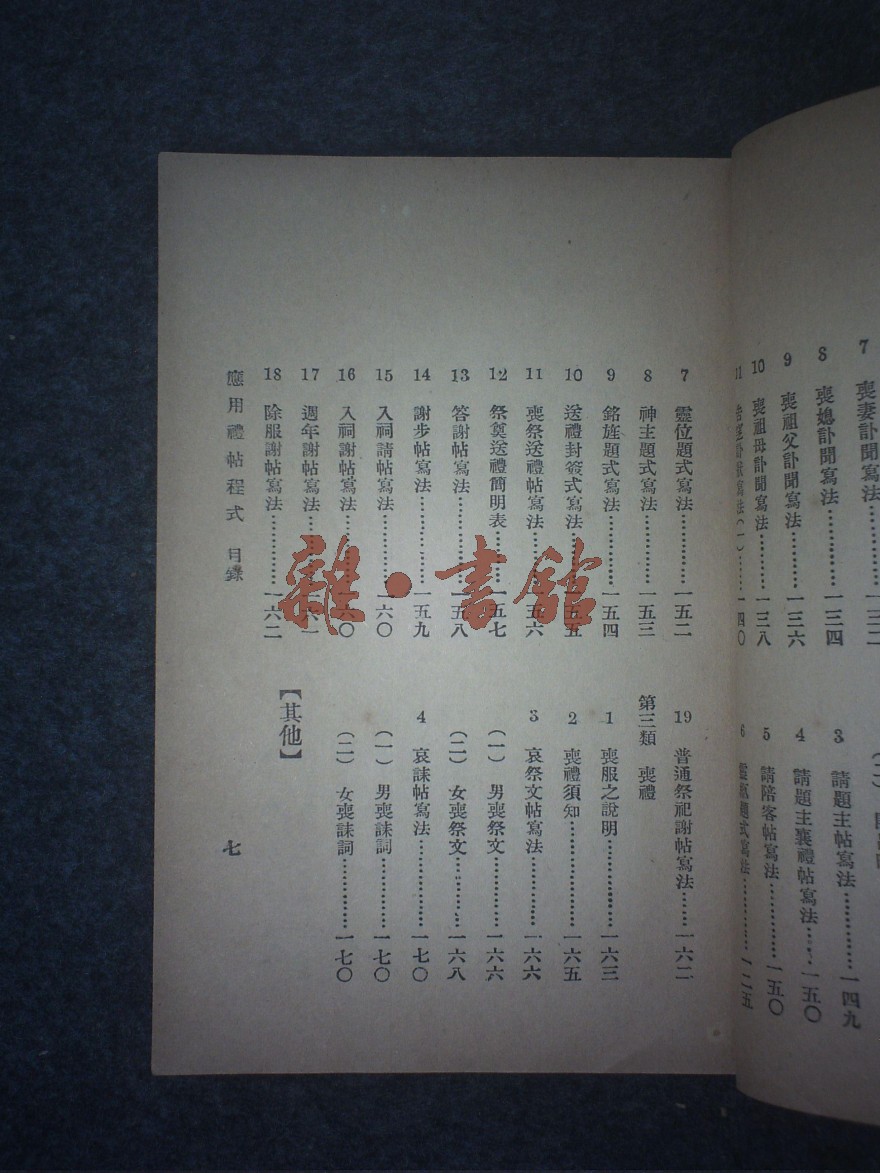 7 喪妻訃聞寫法
8 喪媳訃聞寫法……一三四
9 喪祖父訃聞寫法……一三六
10 喪祖母訃聞寫法……一三八
3 請題主帖寫法……一四九
4 請題主襄禮帖寫法……一五〇
5 請陪客帖寫法……一五〇
7 靈位題式寫法……一五二
8 神主題式寫法……一五三
9 銘旌題式寫法……一五四
10 送禮封簽式寫法……一五五
11 喪祭送禮帖寫法……一五六
12 祭奠送禮簡明表……一五七
13 答謝帖寫法……一五八
14 謝步帖寫法……一五九
15 入祠請帖寫法……一六〇
16 入祠謝帖寫法……一六〇
17 週年謝帖寫法……一六一
18 除服謝帖寫法……一六二
19 普通祭祀謝帖寫法……一六二
第三類 喪禮
1 喪服之說明……一六三
2 喪禮須知……一六五
3 哀祭文帖寫法……一六六
(一) 男喪祭文……一六六
(二) 女喪祭文……一六八
4 哀誄帖寫法……一七〇
(一) 男喪誄詞……一七〇
(二) 女喪誄詞……一七〇
【其他】
應用禮帖程式 目錄
七
雜·書館